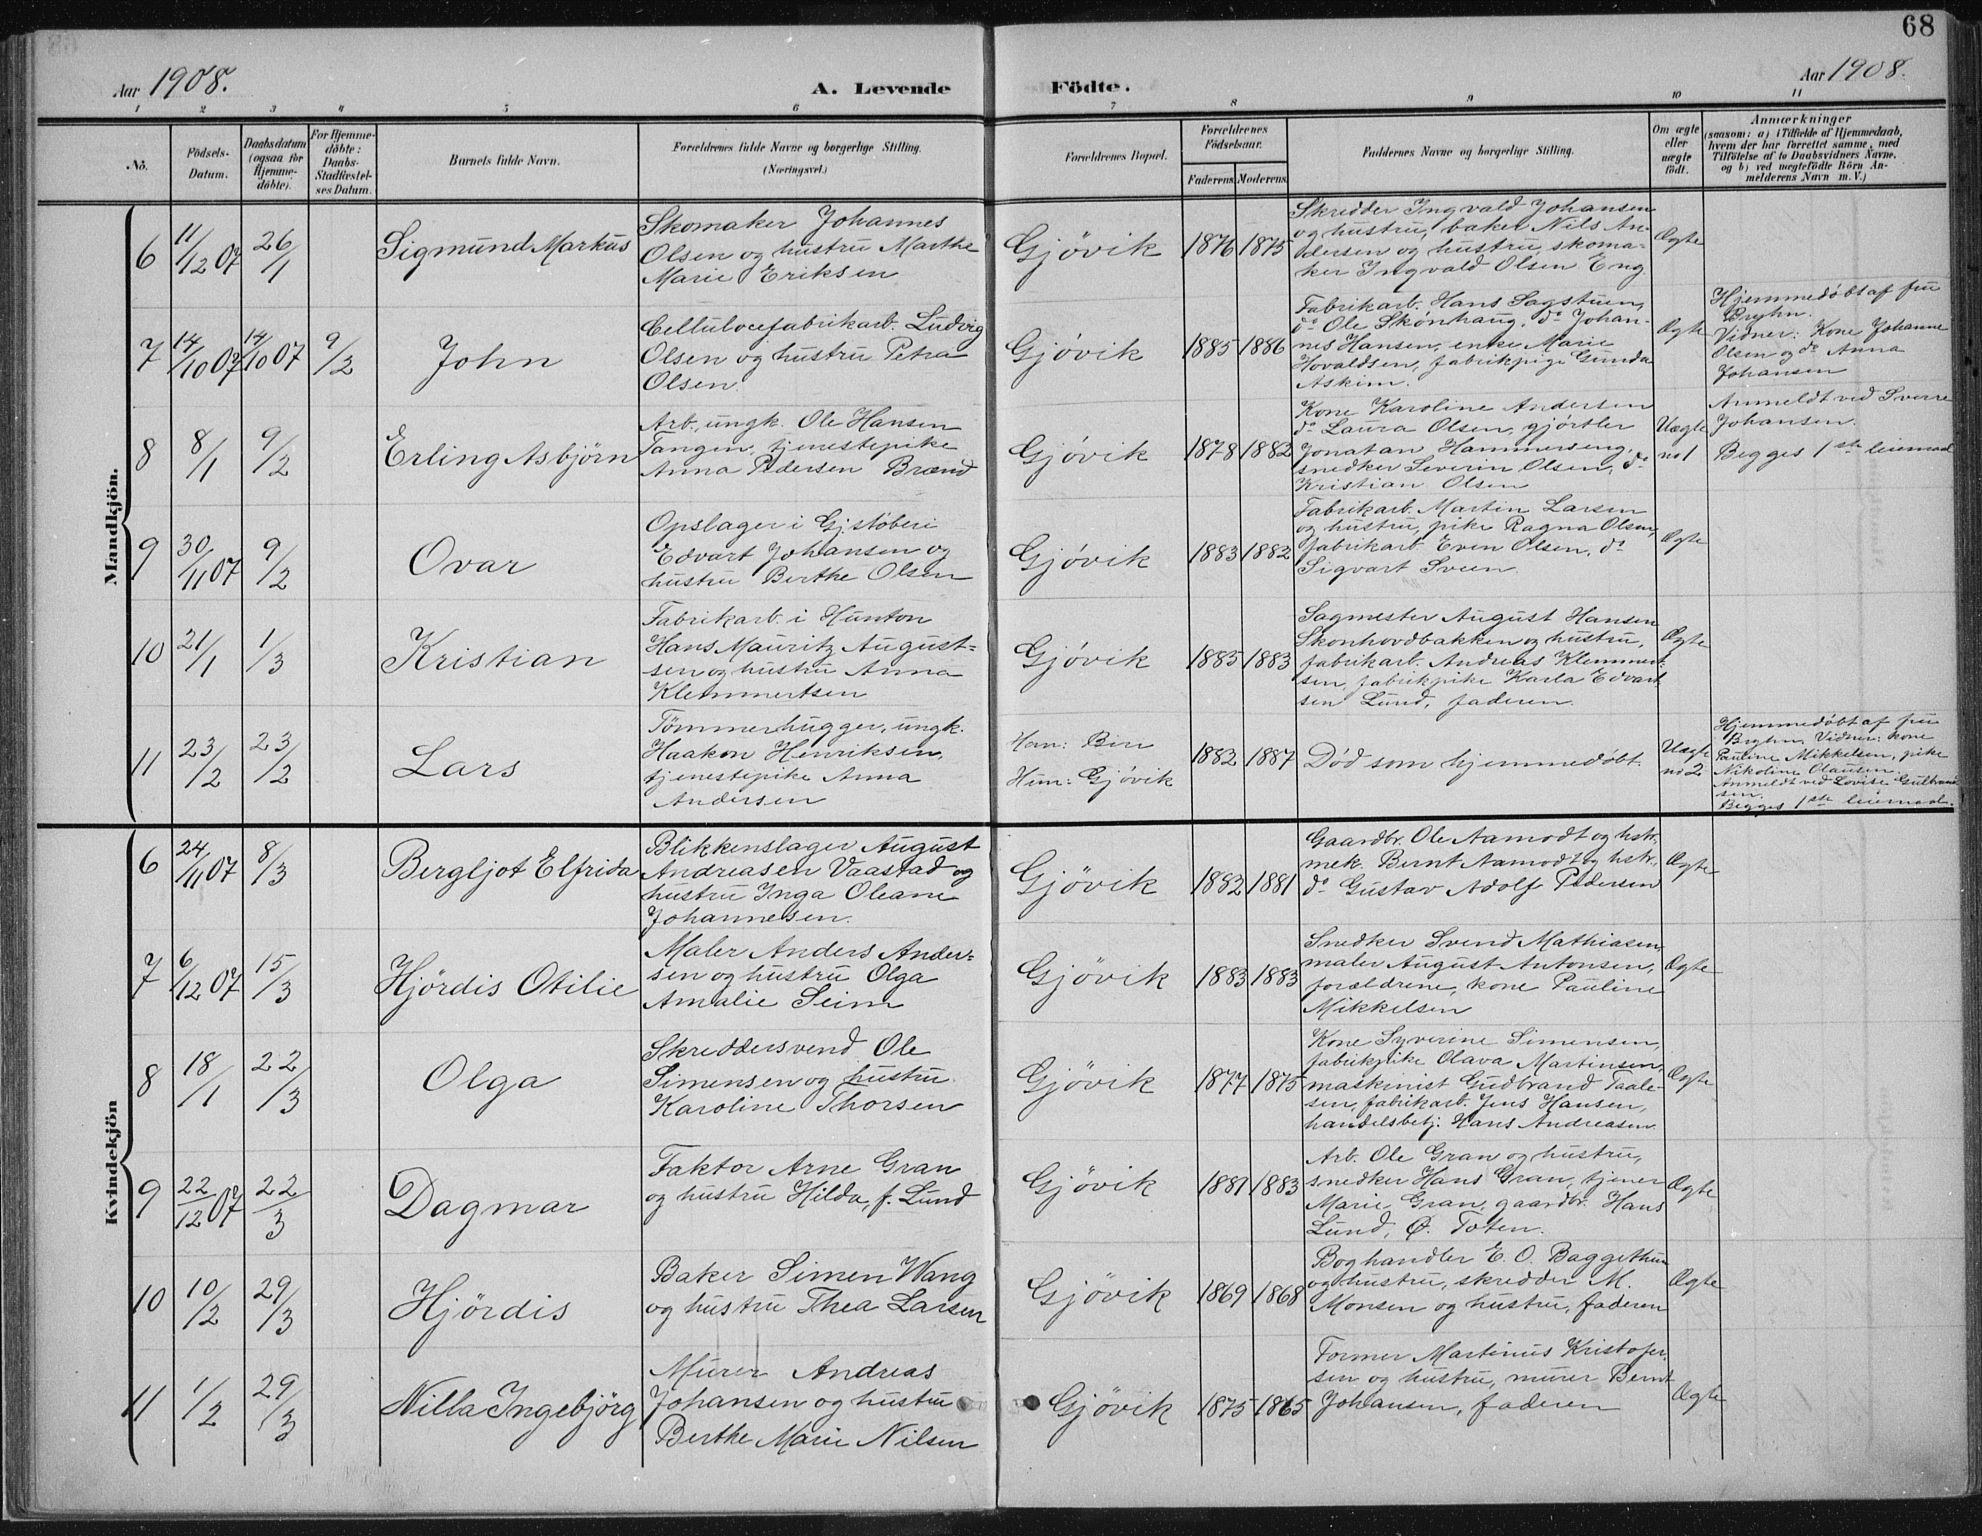 68
Aar 1908.
A. Levende Födte.
Aar 1908.
1 2 3 4 5 6 7 8 9 10 11
No.
Födsels-
Datum.
Daabsdatum
(ogsaa for
Hjemme-
döbte).
For Hjemme-
döbte:
Daabs-
Stadfæstel-
ses Datum.
Barnets fulde Navn.
Forældrenes fulde Navne og borgerlige Stilling.
(Næringsvei.)
Forældrenes Bopæl.
Forældrenes
Födselsaar.
Faderens. Moderens.
Faddernes Navne og borgerlige Stilling.
Om ægte
eller
uægte
födt.
Anmærkninger
(saasom: a) i Tilfælde af Hjemmedaab,
hvem der har forrettet samme, med
Tilföielse af to Daabsvidners Navne,
og b) ved uægtefödte Börn An-
melderens Navn m. V.)
Mandkjön.
6
11/12 07
26/1
Sigmund Markus
Skomaker Johannes
Olsen og hustru Marthe
Marie Eriksen
Gjövik
1876 1875
Skredder Ingvald Johansen
og hustru, baker Nils An-
dersen og hustru, skoma-
ker Ingvald Olsen Eng
Ægte
7
14/10 07
14/10 07
9/2
John
Cellulocefabrikarb. Ludvig
Olsen og hustru Petra
Olsen.
Gjövik
1885 1886
Fabrikarb. Hans Sagstuen,
do Ole Skönhaug, do Johan-
nes Hansen, enke Marie
Hovaldsen, fabrikpige Gunda
Askim.
Ægte
Hjemmedöbt af fru
Bryhn.
Vidner: Kone Johanne
Olsen og do Anna
Johansen
8
8/1
9/2
Erling Asbjörn
Arb., ungk. Ole Hansen
Tangen, tjenestepike
Anna Pedersen Brænd
Gjövik
1878 1882
Kone Karoline Andersen
do Laura Olsen, gjörtler
Jonatan Hammerseng,
snedker Severin Olsen, do
Kristian Olsen
Uægte
no 1
Anmeldt ved Sverre
Johansen.
Begges 1ste leiermaal
9
30/11 07
9/2
Ovar
Opslager i Gj. støberi
Edvart Johansen og
hustru Berthe Olsen
Gjövik
1883 1882
Fabrikarb. Martin Larsen
og hustru, pike Ragna Olsen,
fabrikarb. Even Olsen, do
Sigvart Sveen.
Ægte
10
21/1
1/3
Kristian
Fabrikarb. i Hunton
Hans Mauritz August-
sen og hustru Anna
Klemmertsen
Gjövik
1885 1883
Sagmester August Hansen
Skonhovdbakken og hustru,
fabrikarb. Andreas Klemmert-
sen, fabrikpike Karla Edvart-
sen Lund, faderen.
Ægte
11
23/2
23/2
Lars
Tömmerhugger, ungk.
Haakon Henriksen,
tjenestepike Anna
Andersen
Han: Biri
Hun: Gjövik
1882 1887
Död som hjemmedöbt.
Uægte
no 2
Hjemmedöbt af fru
Bryhn. Vidner: kone
Pauline Mikkelsen, pike
Nikoline Olausen.
Anmeldt ved Lovise Gulbrand-
sen.
Begges 1ste leiermaal.
Kvindekjön
6
24/11 07
8/3
Bergljot Elfrida
Blikkenslager August
Andreasen Vaastad og
hustru Inga Oleane
Johannesen.
Gjövik
1882 1881
Gaardbr. Ole Aamodt og hstr.
mek. Bernt Aamodt og hstr.
do Gustav Adolf Pedersen
Ægte
7
6/12 07
15/3
Hjördis Otilie
Maler Anders Ander-
sen og hustru Olga
Amalie Seim
Gjövik
1883 1883
Snedker Svend Mathiasen,
maler August Antonsen,
forældrene, kone Pauline
Mikkelsen
Ægte
8
18/1
22/3
Olga
Skreddersvend Ole
Simensen og hustru
Karoline Thorsen
Gjövik
1877 1875
Kone Syverine Simensen,
fabrikpike Olava Martinsen,
maskinist Gudbrand Paale-
sen, fabrikarb. Jens Hansen,
handelsbetj. Hans Andreasen
Ægte
9
22/12 07
22/3
Dagmar
Faktor Arne Gran
og hustru Hilda, f. Lund
Gjövik
1881 1883
Arb. Ole Gran og hustru,
snedker Hans Gran, tjener
Marie Gran, gaardbr. Hans
Lund, Ø. Toten.
Ægte
10
10/2
29/3
Hjördis
Baker Simen Wang
og hustru Thea Larsen
Gjövik
1869 1868
Boghandler E. O. Baggethun
og hustru, skredder M.
Monsen og hustru, faderen
Ægte
11
1/2
29/3
Nilla Ingebjörg
Murer Andreas
Johansen og hustru
Berthe Marie Nilsen
Gjövik
1875 1865
Former Martinus Kristofer-
sen og hustru, murer Bernt
Johansen, faderen
Ægte